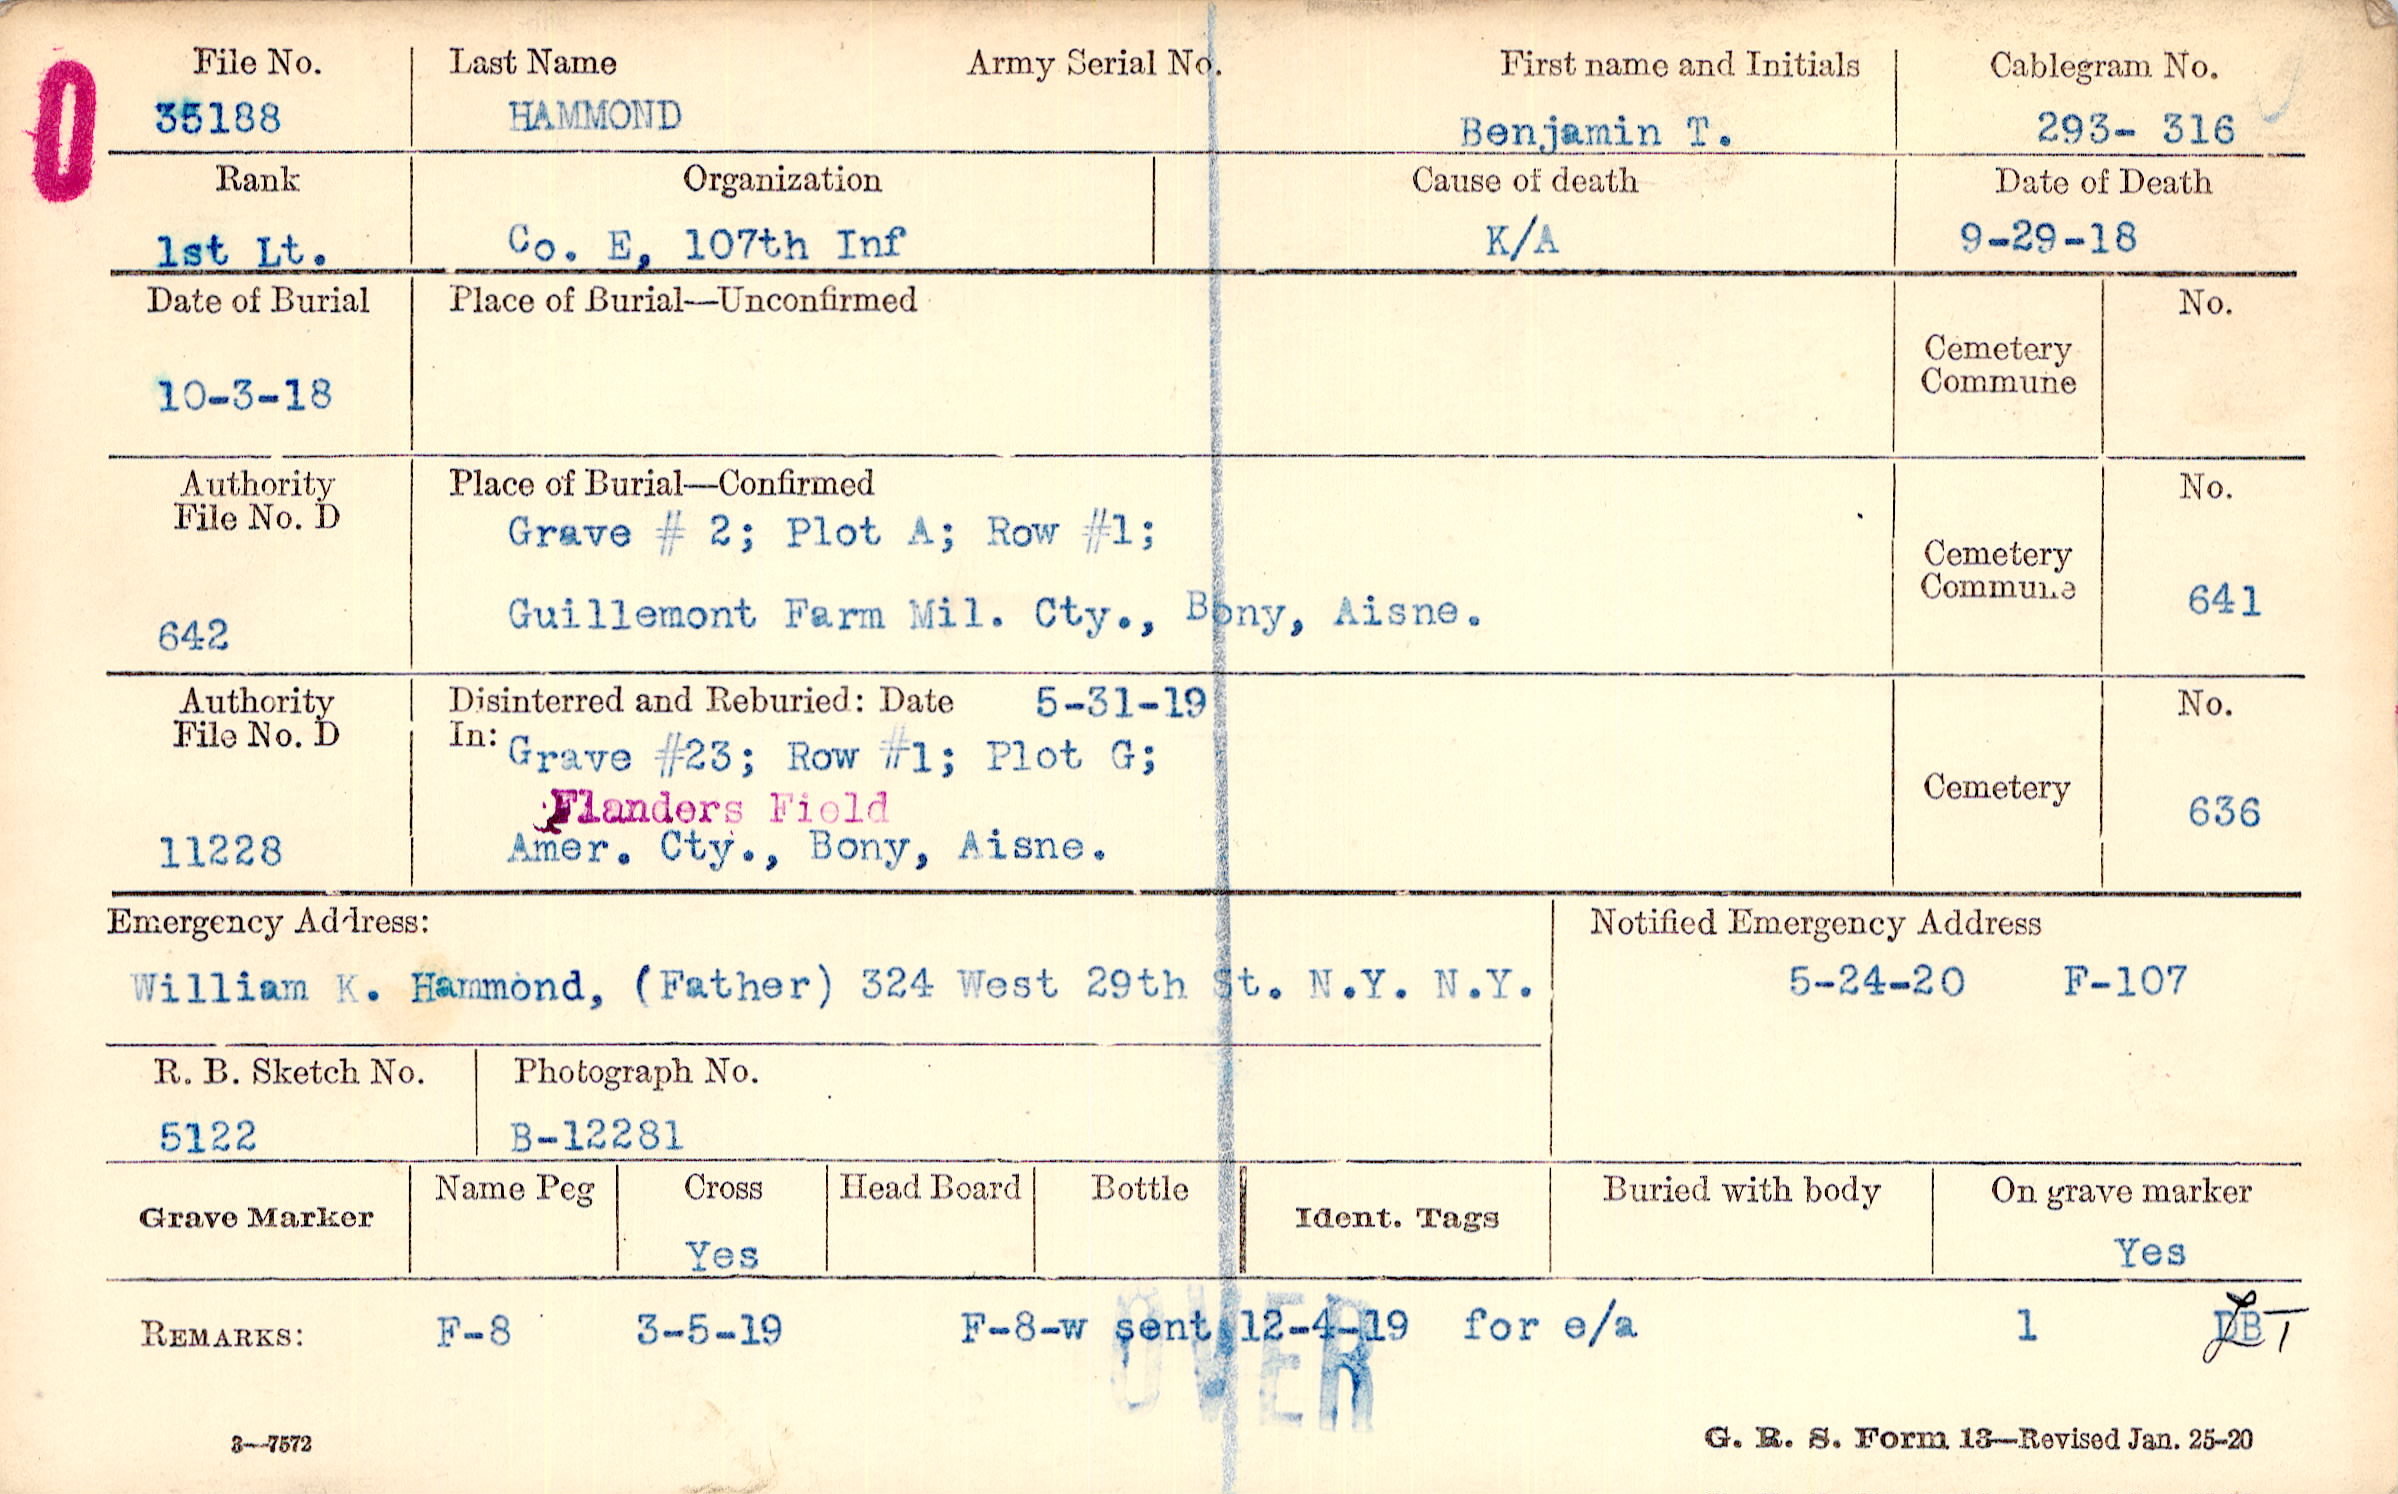 0
File No. Last Name Army Serial No. First name and Initials Cablegram No.
35188 HAMMOND Benjamin T. 293- 316
Rank Organization Cause of death Date of Death
1st Lt. Co. E, 107th Inf K/A 9-29-18
Date of Burial Place of Burial—Unconfirmed No.
Cemetery
Commune
10-3-18
Authority Place of Burial—Confirmed No.
File No. D
Grave # 2; Plot A; Row #1;
Cemetery
Commune
Guillemont Farm Mil. Cty., Bony, Aisne. 641
642
Authority Disinterred and Reburied: Date 5-31-19 No.
File No. D In: Grave #23; Row #1; Plot G;
Cemetery
Flanders Field 636
11228 Amer. Cty., Bony, Aisne.
Emergency Address: Notified Emergency Address
William K. Hammond, (Father) 324 West 29th St. N.Y. N.Y. 5-24-20 F-107
R. B. Sketch No. Photograph No.
5122 B-12281
Name Peg Cross Head Board Bottle Buried with body On grave marker
Grave Marker Ident. Tags
Yes Yes
REMARKS: F-8 3-5-19 F-8-w sent 12-4-19 for e/a 1 DBT
OVER
3—7572 G. R. S. Form 13—Revised Jan. 25-20